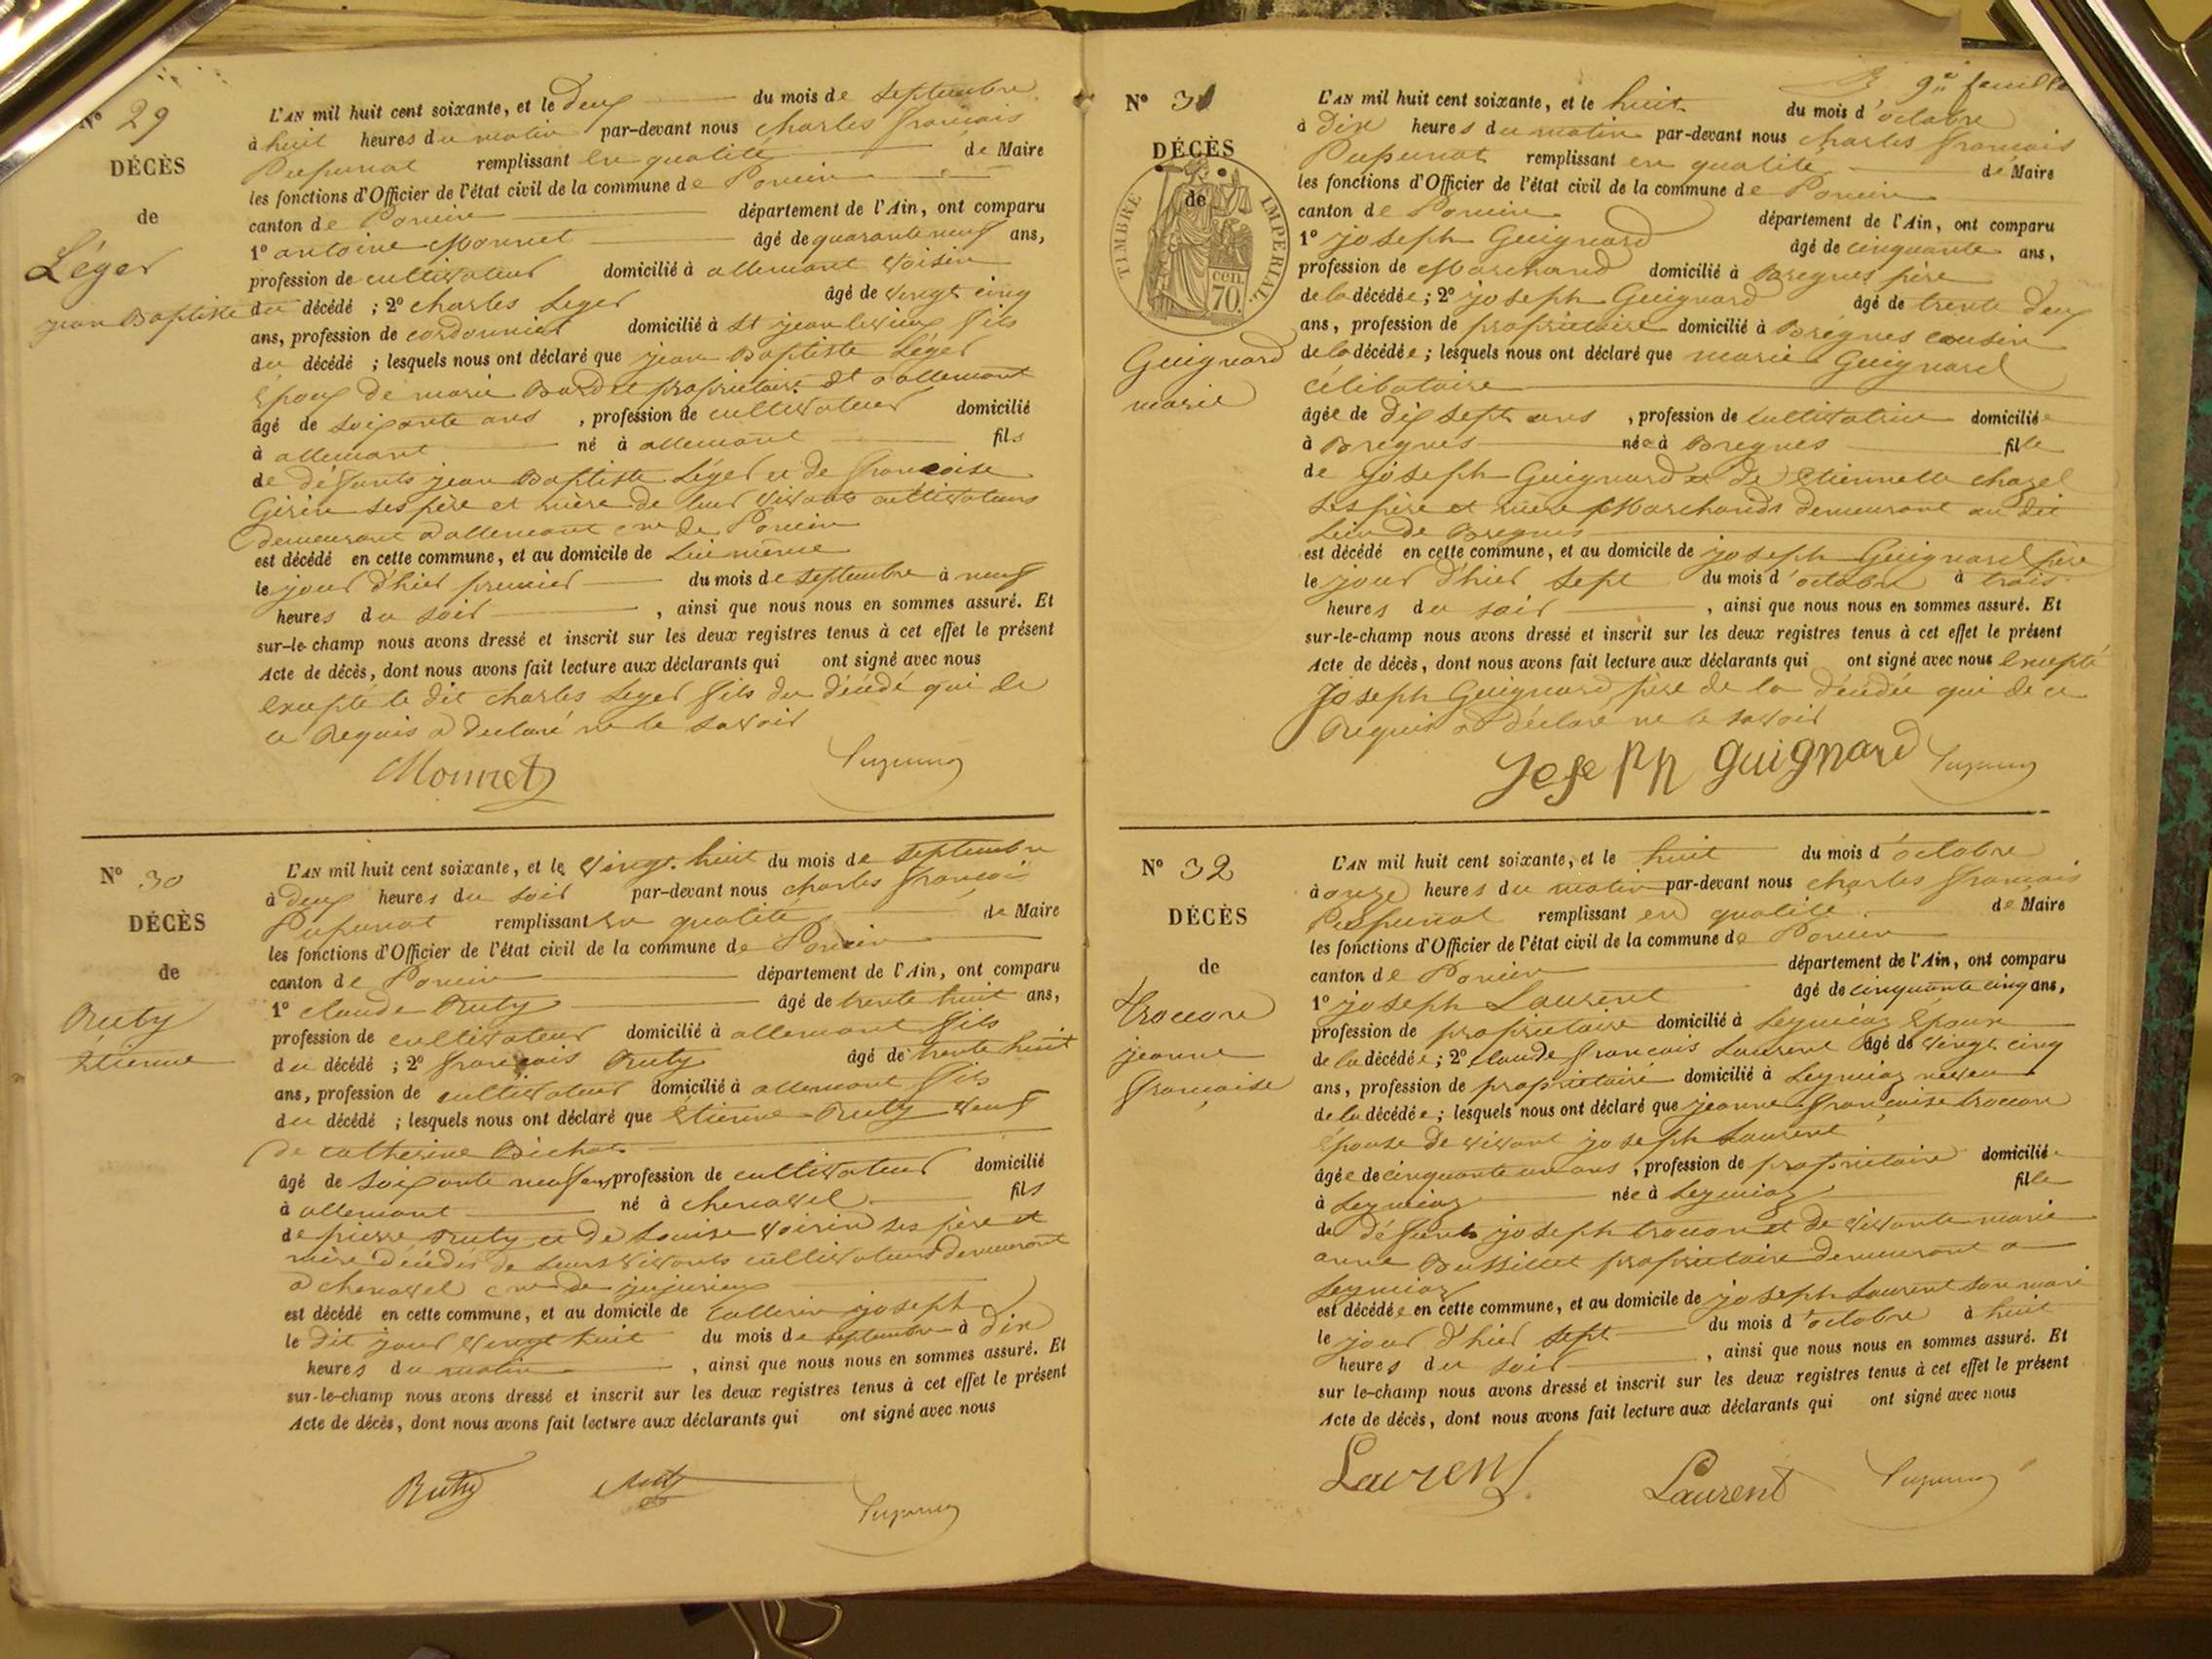 N° 29
DÉCÈS
de
Léger
jean Baptiste
L'AN mil huit cent soixante, et le deux du mois de septembre
à huit heures du matin par-devant nous charles françois
remplissant en qualité de Maire
les fonctions d'Officier de l'état civil de la commune de Poncin
canton de Poncin département de l'Ain, ont comparu
1° antoine Monnet âgé de quarante neuf ans,
profession de cultivateur domicilié à allement voisin
du décédé ; 2° charles Leger âgé de vingt cinq
ans, profession de cordonnier domicilié à St jean le vieux fils
du décédé ; lesquels nous ont déclaré que jean Baptiste Léger
époux de marie propriétaire à allement
âgé de soixante ans , profession de cultivateur domicilié
à allement né à allement fils
de défunts jean Baptiste Léger et de françoise
Girin ses père et mère de leur vivants cultivateurs
demeurant à allement cne de Poncin
est décédé en cette commune, et au domicile de lui même
le jour d'hier premier du mois de septembre à neuf
heures du soir , ainsi que nous nous en sommes assuré. Et
sur-le-champ nous avons dressé et inscrit sur les deux registres tenus à cet effet le présent
Acte de décès, dont nous avons fait lecture aux déclarants qui ont signé avec nous
excepté le dit charles Leger fils du décédé qui de
ce Requis a declaré ne le savoir
Monnet
N° 30
DÉCÈS
de
Ruty
Etienne
L'AN mil huit cent soixante, et le vingt huit du mois de septembre
à deux heures du soir par-devant nous charles françois
remplissant en qualité de Maire
les fonctions d'Officier de l'état civil de la commune de Poncin
canton de Poncin département de l'Ain, ont comparu
1° claude Ruty âgé de trente huit ans,
profession de cultivateur domicilié à allement fils
du décédé ; 2° françois Ruty âgé de trente huit
ans, profession de cultivateur domicilié à allement fils
du décédé ; lesquels nous ont déclaré que Etienne Ruty veuf
de catherine Bichat
âgé de soixante neuf ans profession de cultivateur domicilié
à allement né à chenavel fils
de pierre Ruty et de Louise Voirin ses père et
mère décédés de leurs vivants cultivateurs demeurant
à chenavel cne de jujurieux
est décédé en cette commune, et au domicile de joseph
le dit jour vingt huit du mois de septembre à dix
heures du matin , ainsi que nous nous en sommes assuré. Et
sur-le-champ nous avons dressé et inscrit sur les deux registres tenus à cet effet le présent
Acte de décès, dont nous avons fait lecture aux déclarants qui ont signé avec nous
Ruty
9e feuille
N° 31
DÉCÈS
de
TIMBRE IMPÉRIAL
70 cen.
Guignard
marie
L'AN mil huit cent soixante, et le huit du mois d'octobre
à dix heures du matin par-devant nous charles françois
remplissant en qualité de Maire
les fonctions d'Officier de l'état civil de la commune de Poncin
canton de Poncin département de l'Ain, ont comparu
1° joseph Guignard âgé de cinquante ans,
profession de Marchand domicilié à Bregnes père
de la décédée ; 2° joseph Guignard âgé de trente deux
ans, profession de propriétaire domicilié à Brégnes cousin
de la décédée ; lesquels nous ont déclaré que marie Guignard
célibataire
âgée de dix sept ans , profession de cultivatrice domicilié
à Bregnes née à Bregnes fille
de joseph Guignard et de Etiennette chazel
ses père et mère Marchands demeurant au dit
lieu de Bregnes
est décédé en cette commune, et au domicile de joseph Guignard père
le jour d'hier sept du mois d'octobre à trois
heures du soir , ainsi que nous nous en sommes assuré. Et
sur-le-champ nous avons dressé et inscrit sur les deux registres tenus à cet effet le présent
Acte de décès, dont nous avons fait lecture aux déclarants qui ont signé avec nous excepté
Joseph Guignard père de la décédée qui de ce
Requis a déclaré ne le savoir
Joseph Guignard
N° 32
DÉCÈS
de
troccon
jeanne
françoise
L'AN mil huit cent soixante, et le huit du mois d'octobre
à onze heures du matin par-devant nous charles françois
remplissant en qualité de Maire
les fonctions d'Officier de l'état civil de la commune de Poncin
canton de Poncin département de l'Ain, ont comparu
1° joseph Laurent âgé de cinquante cinq ans,
profession de propriétaire domicilié à Leymiaz époux
de la décédée ; 2° claude françois Laurent âgé de vingt cinq
ans, profession de propriétaire domicilié à Leymiaz neveu
de la décédée ; lesquels nous ont déclaré que jeanne françoise troccon
épouse de vivant joseph Laurent
âgée de cinquante un ans , profession de propriétaire domicilié
à Leymiaz née à Leymiaz fille
de défunts joseph troccon et de vivante marie
anne propriétaire demeurant à
Leymiaz
est décédée en cette commune, et au domicile de joseph Laurent son mari
le jour d'hier sept du mois d'octobre à huit
heures du soir , ainsi que nous nous en sommes assuré. Et
sur le-champ nous avons dressé et inscrit sur les deux registres tenus à cet effet le présent
Acte de décès, dont nous avons fait lecture aux déclarants qui ont signé avec nous
Laurent
Laurent